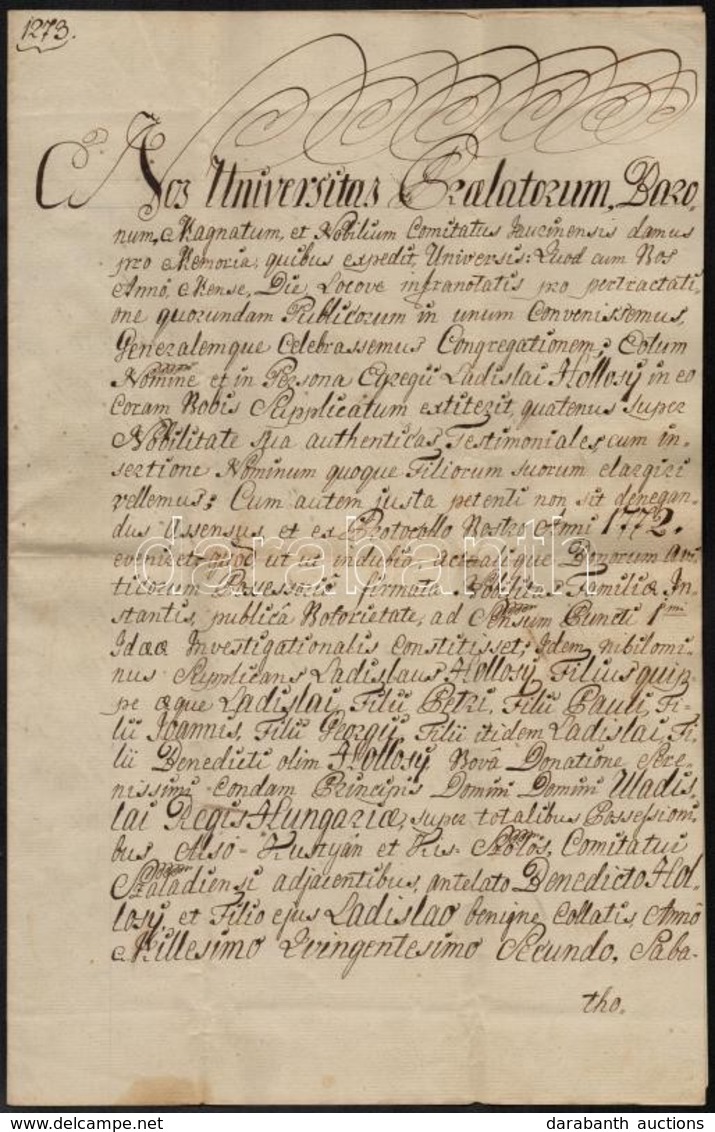 1273.
Nos Universitas Prælatorum, Baro-
num, Magnatum, et Nobilium Comitatus Jaurinensis damus
pro Memoria, quibus expedit, Universis: Quod cum Nos
Annô, Mense, Die, Locove infranotatis pro pertractati-
one quorundam Publicorum in unum Convenissemus,
Generalemque Celebrassemus Congregationem; Eotum
Nomine et in Persona Egregii Ladislai Hollosÿ in eo
Coram Nobis Supplicatum extiterit, quatenus super
Nobilitate sua authenticas Testimoniales, cum in-
sertione Nominum quoque Filiorum suorum elargiri
vellemus; Cum autem justa petenti non sit denegan-
dus Assensus, et ex Protocollo Nostro Anni 1772.
eveniret, ut in indubio, que Bonorum avi-
ticorum Possessorio firmata Nobilitas Familiæ In-
stantis, publicâ Notorietate, ad Sensum Puncti 1mi
Ideæ Investigationalis Constitisset; Idem nihilomi-
nus Supplicans Ladislaus Hollosÿ, Filius quip-
pe æque Ladislai, Filii Petri, Filii Pauli, Fi-
lii Joannis, Filii Georgÿ, Filii itidem Ladislai, Fi-
lii Benedicti olim Hollosÿ Novâ Donatione Sere-
nissimi condam Principis Domini Domini Uladis-
lai Regis Hungariæ, super totalibus Possessioni-
bus Alsó-Kustyán et Kis-Szölös, Comitatui
Szaladiensi adjacentibus, antelato Benedicto Hol-
losÿ, et Filio ejus Ladislao benigne Collatis, Annô
Millesimo Qvingentesimo Secundo, Saba-
tho.
darabanth
darabanth auctions